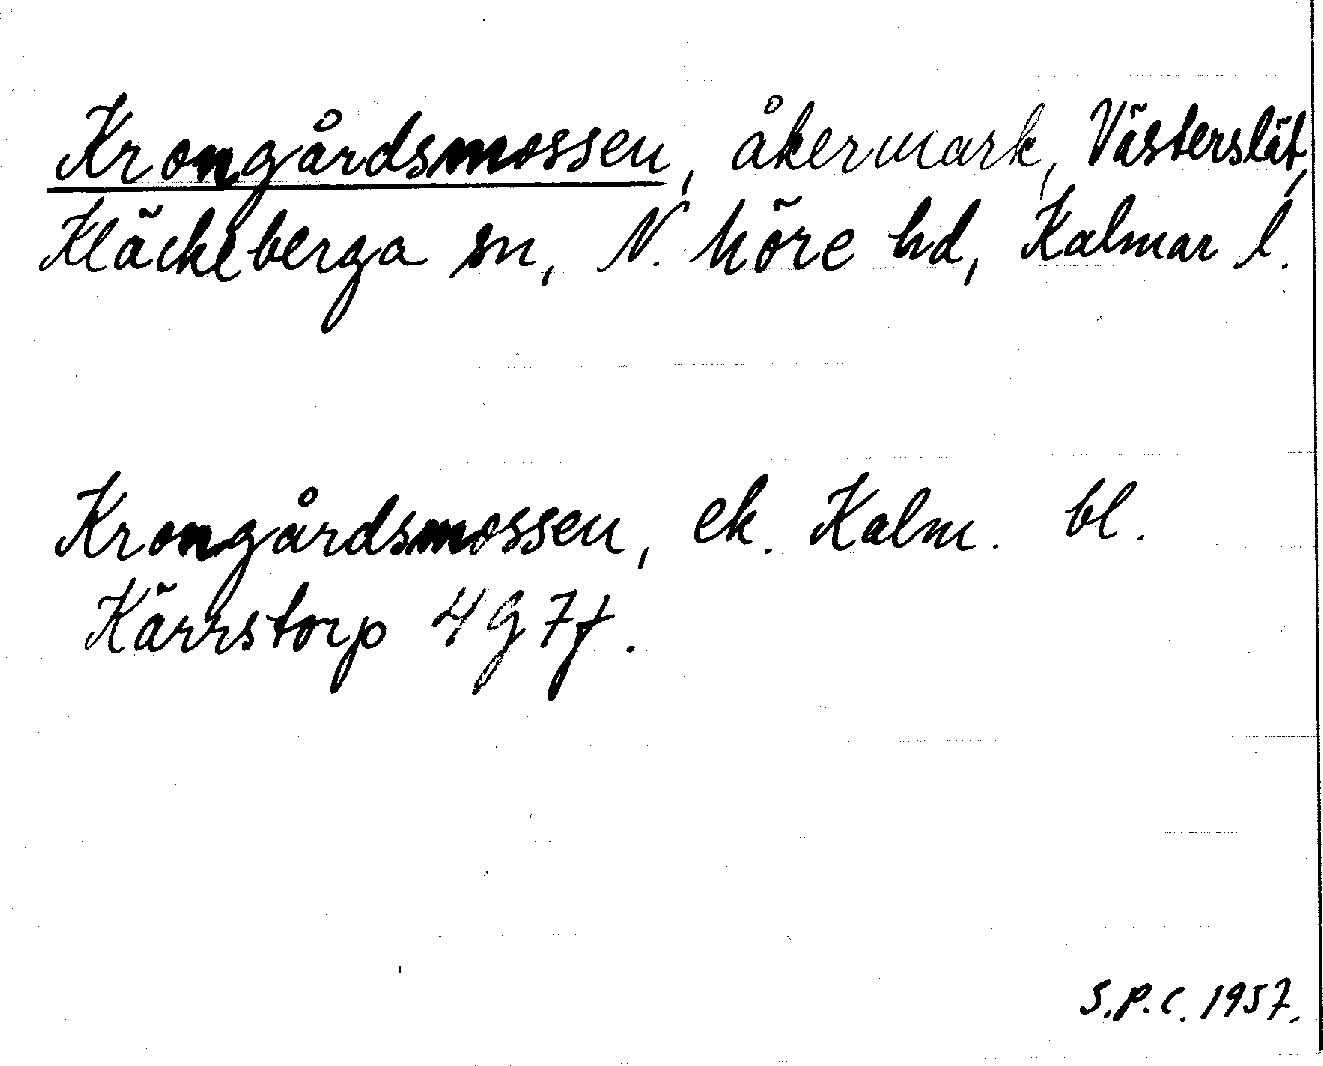 Krongårdsmossen, åkermark, Västerslät,
Kläckeberga sn, N. Möre hd, Kalmar l.
Krongårdsmossen, ek. Kalm. bl.
Kärrstorp 4G7f.
S.P.C. 1957.